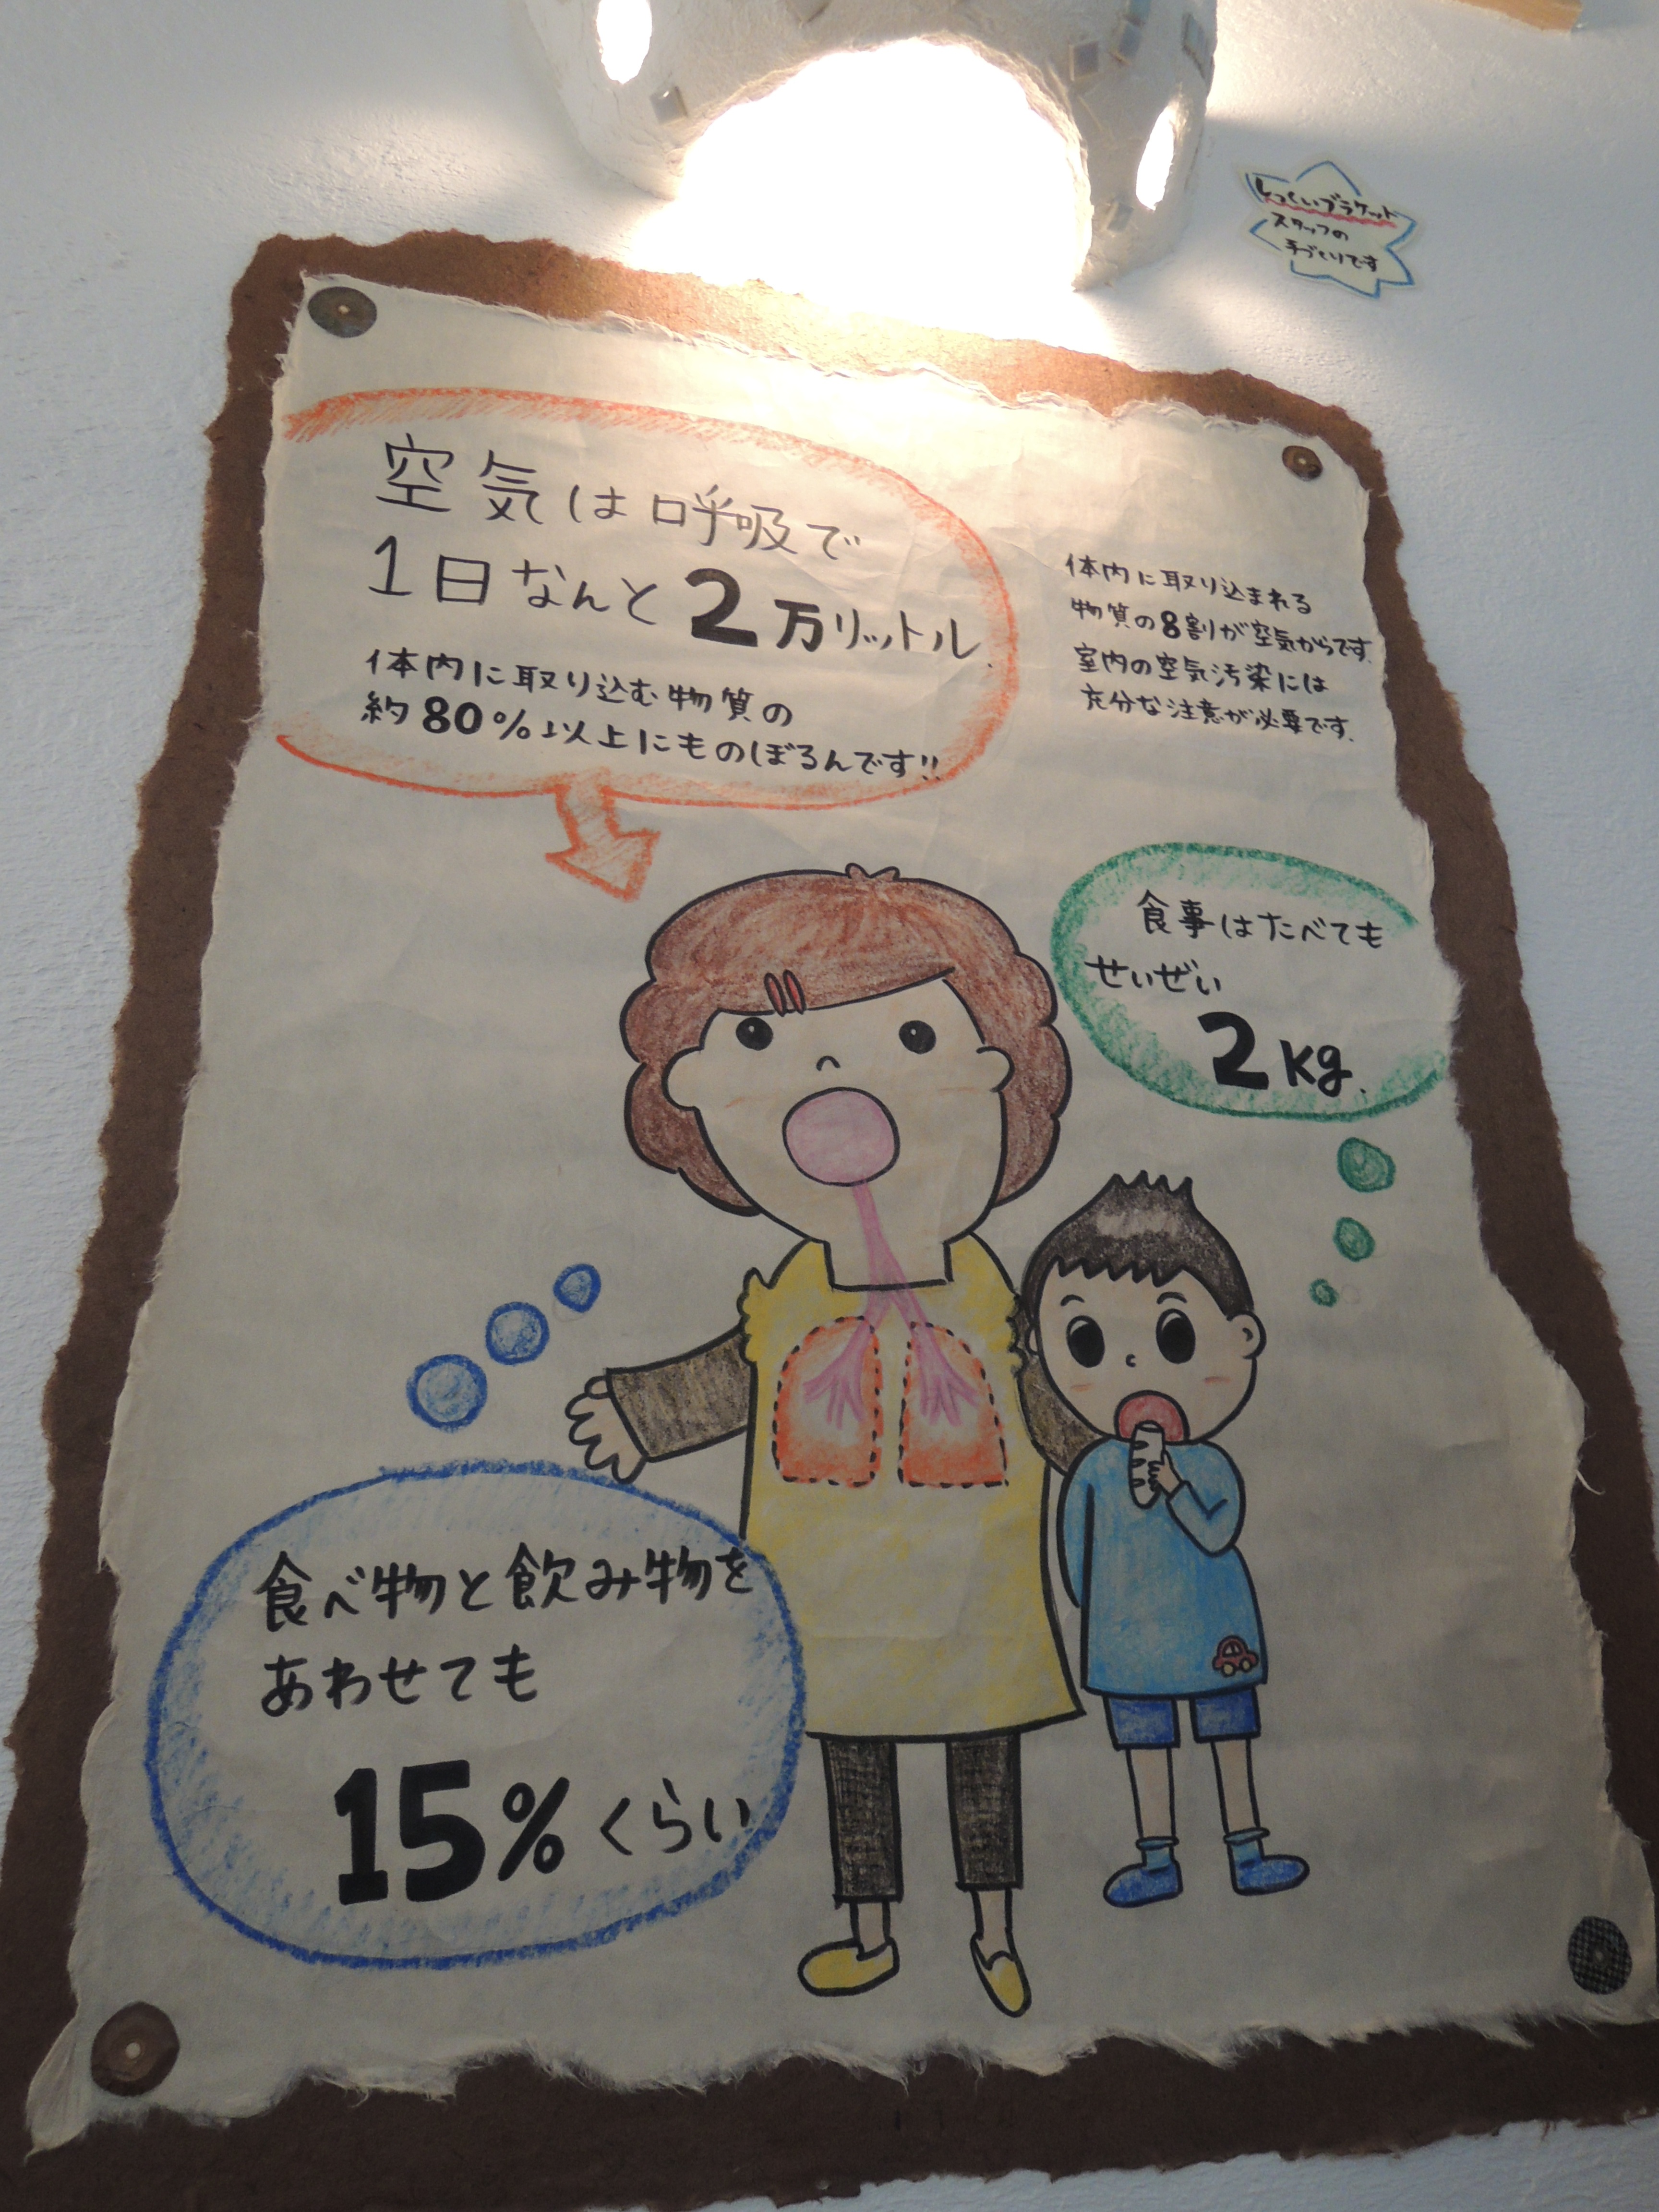 しっくいブラケット
スタッフの
手づくりです
空気は呼吸で
1日なんと2万リットル.
体内に取り込む物質の
約80%以上にものぼるんです!!
体内に取り込まれる
物質の8割が空気からです.
室内の空気汚染には
充分な注意が必要です.
食事はたべても
せいぜい
2kg.
食べ物と飲み物を
あわせても
15%くらい